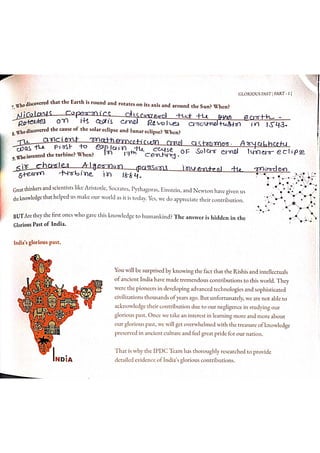 GLORIOUS PAST | PART - I |
7. Who discovered that the Earth is round and rotates on its axis and around the Sun? When?
Nicolous Copernics discovered that the earth
Rotates on its axis and Revolves in 1543.
8. Who discovered the cause of the solar eclipse and lunar eclipse? When?
The ancient mathematician and astronomer Aryabhatta
was the first to explain the cause of Solar and lunar eclipse
in 19th century.
9. Who invented the turbine? When?
Sir charles Algernon parsons invented the modern
steam turbine in 1884.
Great thinkers and scientists like Aristotle, Socrates, Pythagoras, Einstein, and Newton have given us
the knowledge that helped us make our world as it is today. Yes, we do appreciate their contribution.
BUT Are they the first ones who gave this knowledge to humankind? The answer is hidden in the
Glorious Past of India.
India's glorious past.
You will be surprised by knowing the fact that the Rishis and intellectuals
of ancient India have made tremendous contributions to this world. They
were the pioneers in developing advanced technologies and sophisticated
civilizations thousands of years ago. But unfortunately, we are not able to
acknowledge their contribution due to our negligence in studying our
glorious past. Once we take an interest in learning more and more about
our glorious past, we will get overwhelmed with the treasure of knowledge
preserved in ancient culture and feel great pride for our nation.
INDIA
That is why the IPDC Team has thoroughly researched to provide
detailed evidence of India's glorious contributions!